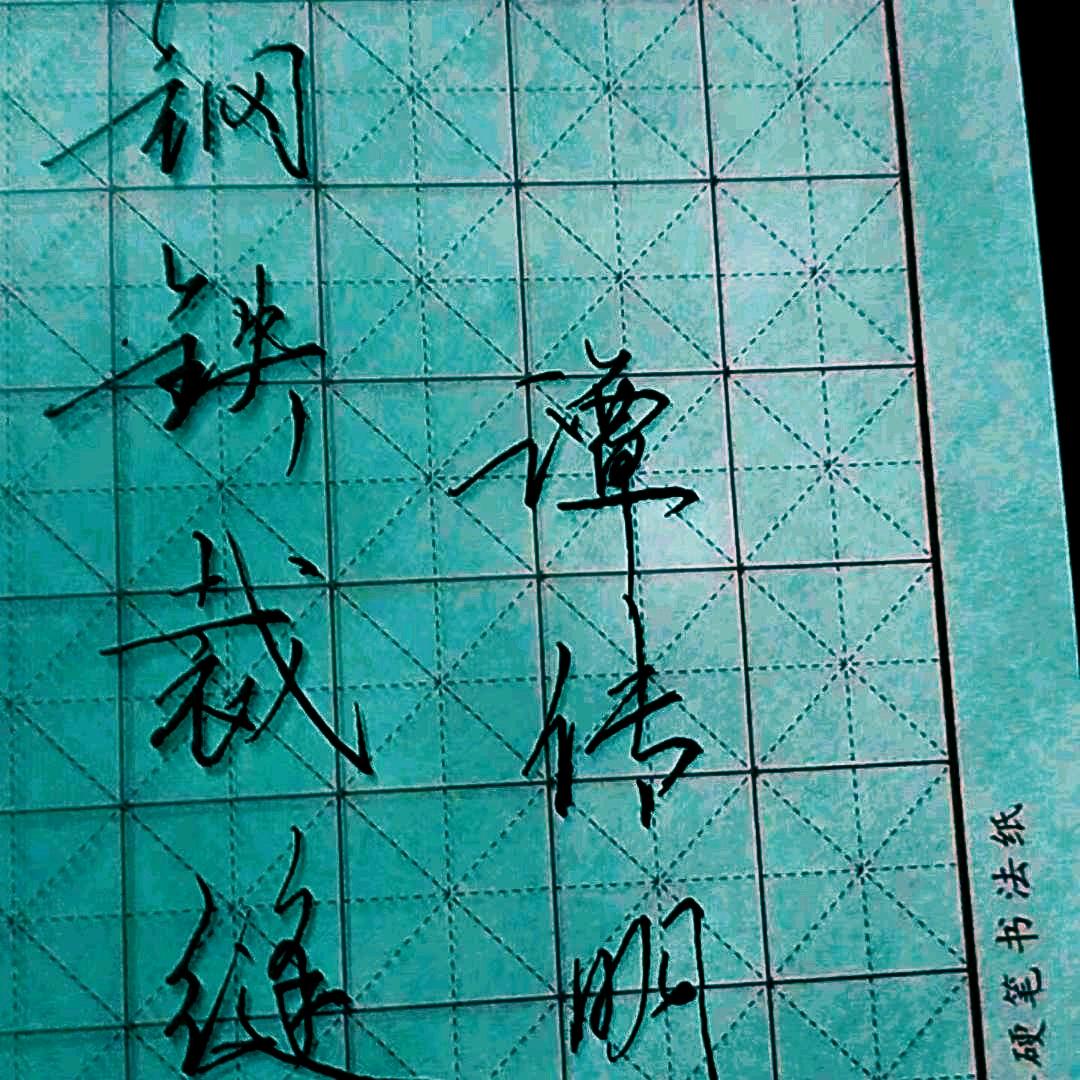 谭传明
钢铁裁缝
硬笔书法纸